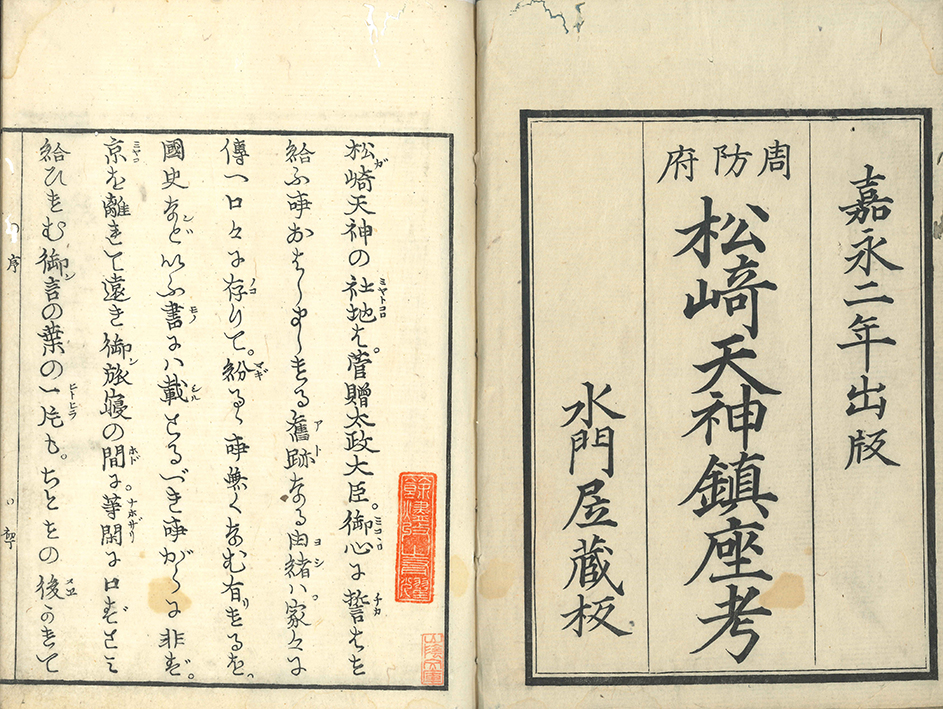 嘉永二年出版
周防府
松﨑天神鎮座考
水門屋蔵板
松﨑天神の社地は。菅贈太政大臣。御心に誓はせ
給ふ事おはしましける舊跡なる由緒ハ。家々に
傳へ口々に存りて。紛るゝ事無くなむ有りけるを。
國史などいふ書にハ載とるべき事がらに非ず。
京を離きて遠き御旅寝の間に。等閑に口ずさミ
給ひけむ御言の葉の一片も。ちとせの後
序